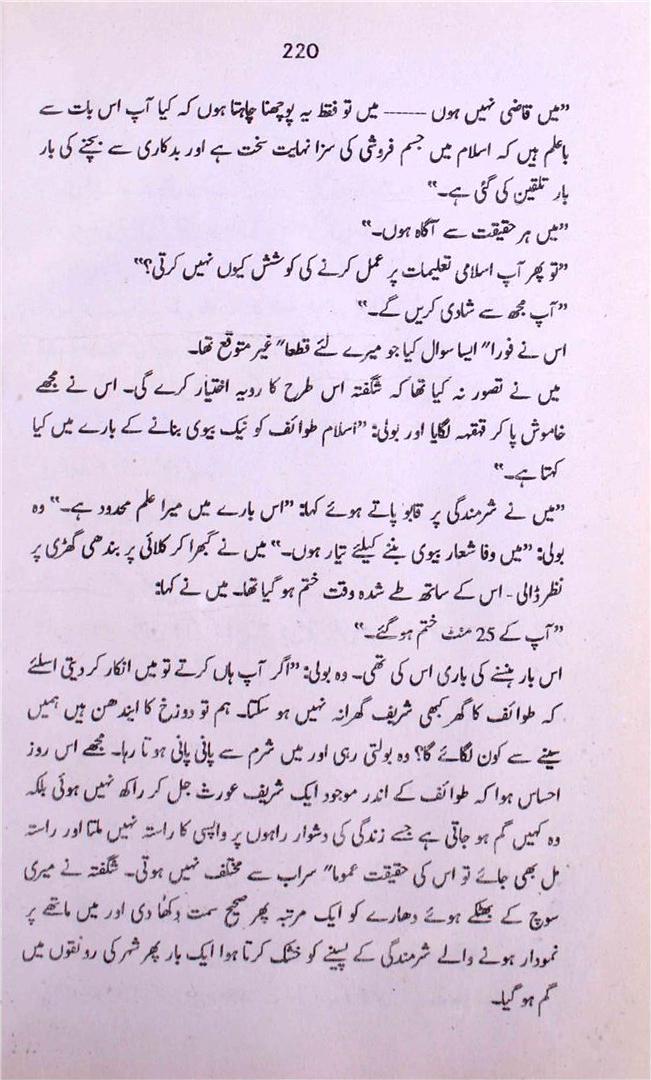 220
”میں قاضی نہیں ہوں ـــــــ میں تو فقط یہ پوچھنا چاہتا ہوں کہ کیا آپ اس بات سے
باعلم ہیں کہ اسلام میں جسم فروشی کی سزا نہایت سخت ہے اور بدکاری سے بچنے کی بار
بار تلقین کی گئی ہے۔“
”میں ہر حقیقت سے آگاہ ہوں۔“
”تو پھر آپ اسلامی تعلیمات پر عمل کرنے کی کوشش کیوں نہیں کرتی؟“
”آپ مجھ سے شادی کریں گے۔“
اس نے فورا” ایسا سوال کیا جو میرے لئے قطعا” غیر متوقع تھا۔
میں نے تصور نہ کیا تھا کہ شگفتہ اس طرح کا رویہ اختیار کرے گی۔ اس نے مجھے
خاموش پا کر قہقہہ لگایا اور بولی: ”اسلام طوائف کو نیک بیوی بنانے کے بارے میں کیا
کہتا ہے۔“
”میں نے شرمندگی پر قابو پاتے ہوئے کہا: ”اس بارے میں میرا علم محدود ہے۔“ وہ
بولی: ”میں وفا شعار بیوی بننے کیلئے تیار ہوں۔“ میں نے گھبرا کر کلائی پر بندھی گھڑی پر
نظر ڈالی - اس کے ساتھ طے شدہ وقت ختم ہو گیا تھا۔ میں نے کہا:
”آپ کے 25 منٹ ختم ہو گئے۔“
اس بار ہنسنے کی باری اس کی تھی۔ وہ بولی: ”اگر آپ ہاں کرتے تو میں انکار کر دیتی اسلئے
کہ طوائف کا گھر کبھی شریف گھرانہ نہیں ہو سکتا۔ ہم تو دوزخ کا ایندھن ہیں ہمیں
سینے سے کون لگائے گا؟ وہ بولتی رہی اور میں شرم سے پانی پانی ہوتا رہا۔ مجھے اس روز
احساس ہوا کہ طوائف کے اندر موجود ایک شریف عورت جل کر راکھ نہیں ہوئی بلکہ
وہ کہیں گم ہو جاتی ہے جسے زندگی کی دشوار راہوں پر واپسی کا راستہ نہیں ملتا اور راستہ
مل بھی جائے تو اس کی حقیقت عموما” سراب سے مختلف نہیں ہوتی۔ شگفتہ نے میری
سوچ کے بھٹکے ہوئے دھارے کو ایک مرتبہ پھر صحیح سمت دکھا دی اور میں ماتھے پر
نمودار ہونے والے شرمندگی کے پسینے کو خشک کرتا ہوا ایک بار پھر شہر کی رونقوں میں
گم ہو گیا۔